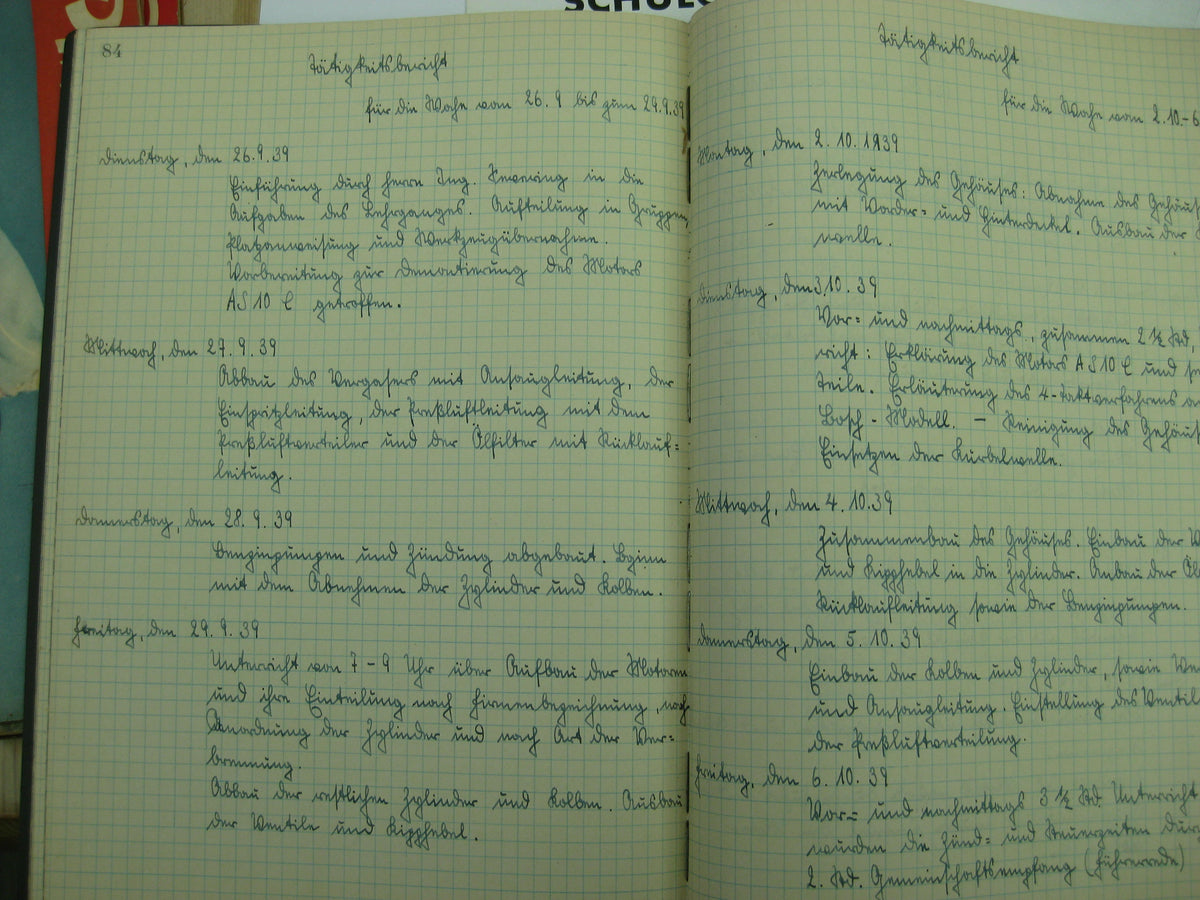 SCHUL
84
Tätigkeitsbericht
für die Woche vom 26.9 bis zum 29.9.39
Dienstag, den 26.9.39
Einführung durch Herrn Ing. in die
Aufgaben des Lehrganges. Aufteilung in Gruppen,
Platzanweisung und Werkzeugübernahme.
Vorbereitung zur Demontierung des Motors
AS 10 C getroffen.
Mittwoch, den 27.9.39
Abbau des Vergasers mit Ansaugleitung, der
Einspritzleitung, der Preßluftleitung mit dem
Preßluftverteiler und der Ölfilter mit Rücklauf=
leitung.
Donnerstag, den 28.9.39
Benzinpumpen und Zündung abgebaut. Beginn
mit dem Abnehmen der Zylinder und Kolben.
Freitag, den 29.9.39
Unterricht von 7-9 Uhr über Aufbau der Motoren
und ihre Einteilung nach Firmenbezeichnung, nach
Anordnung der Zylinder und nach Art der Ver=
brennung.
Abbau der restlichen Zylinder und Kolben. Ausbau
der Ventile und Kipphebel.
Tätigkeitsbericht
für die Woche vom 2.10.-6
Montag, den 2.10.1939
Zerlegung des Gehäuses: Abnahme des Gehäus
mit Vorder= und Hinterdeckel. Ausbau der
welle.
Dienstag, den 3.10.39
Vor= und nachmittags, zusammen 2½ Std,
richt: Erklärung des Motors AS 10 C und se
Teile. Erläuterung des 4-Taktverfahrens a
Bosch-Modell. – Reinigung des Gehäus
Einsetzen der Kurbelwelle.
Mittwoch, den 4.10.39
Zusammenbau des Gehäuses. Einbau der V
und Kipphebel in die Zylinder. Anbau der Öl
Rücklaufleitung sowie der Benzinpumpen.
Donnerstag, den 5.10.39
Einbau der Kolben und Zylinder, sowie Ve
und Ansaugleitung. Einstellung des Ventil
der Preßluftverteilung.
Freitag, den 6.10.39
Vor= und nachmittags 3½ Std. Unterricht
wurden die Zünd= und Steuerzeiten dur
2. Std. Gemeinschaftsempfang (Führerrede)